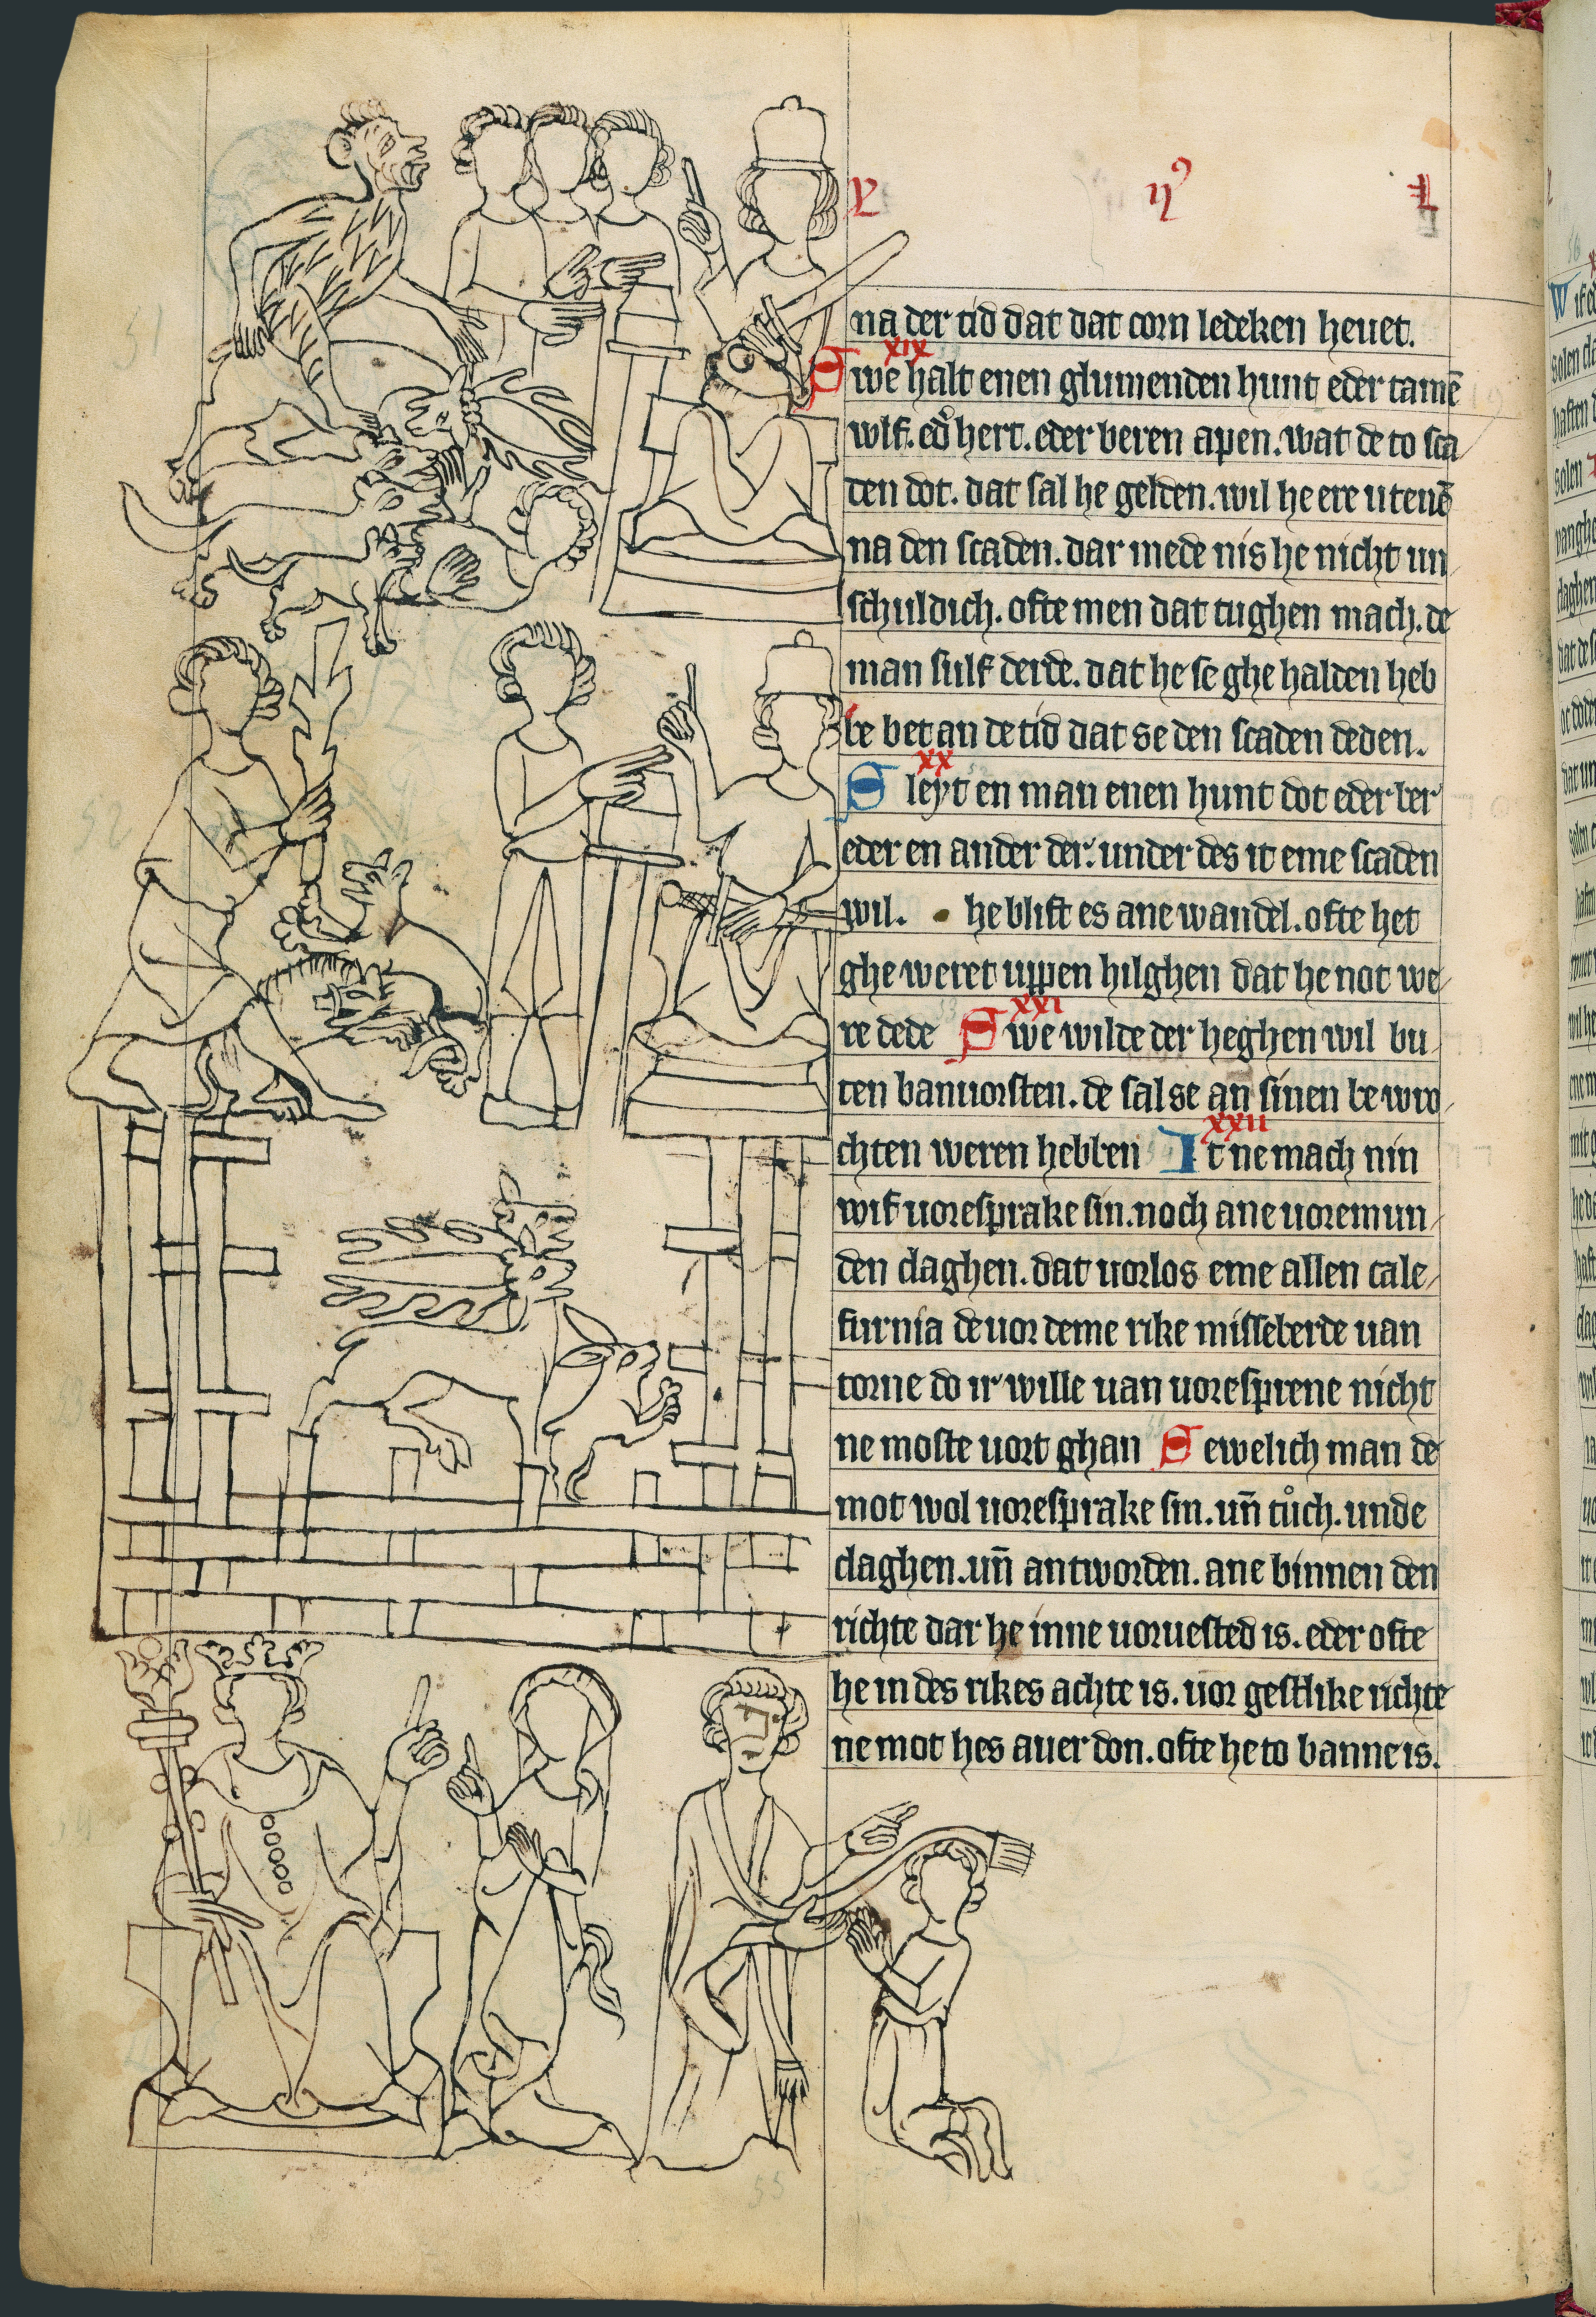 na der tid dat dat corn ledeken heuet.
XIX
Swe halt enen glumenden hunt eder tamē
wlf. ed̉ hert. eder beren apen. wat de to sca
den dot. dat sal he gelden. wil he ere utenē
na den scaden. dar mede nis he nicht un
schuldich. ofte men dat tughen mach. de
man sulf derde. dat he se ghe halden heb
be bet an de tid dat se den scaden deden.
XX
Sleyt en man enen hunt dot eder ber
eder en ander der. under des it eme scaden
wil. he blift es ane wandel. ofte het
ghe weret uppen hilghen dat he not we
XXI
re dede Swe wilde der heghen wil bu
ten banuorsten. de sal se an sinen be wro
XXII
chten weren hebben It ne mach nin
wif uoresprake sin. noch ane uoremun
den claghen. dat uorlos eme allen cale
furnia de uor deme rike misseberde uan
torne do ir wille uan uoresprene nicht
ne moste uort ghan Sewelich man de
mot wol uoresprake sin. uñ tůch. unde
claghen. uñ antworden. ane binnen den
richte dar he inne uoruested is. eder ofte
he in des rikes achte is. uor gestlike richte
ne mot hes auer don. ofte he to banne is.